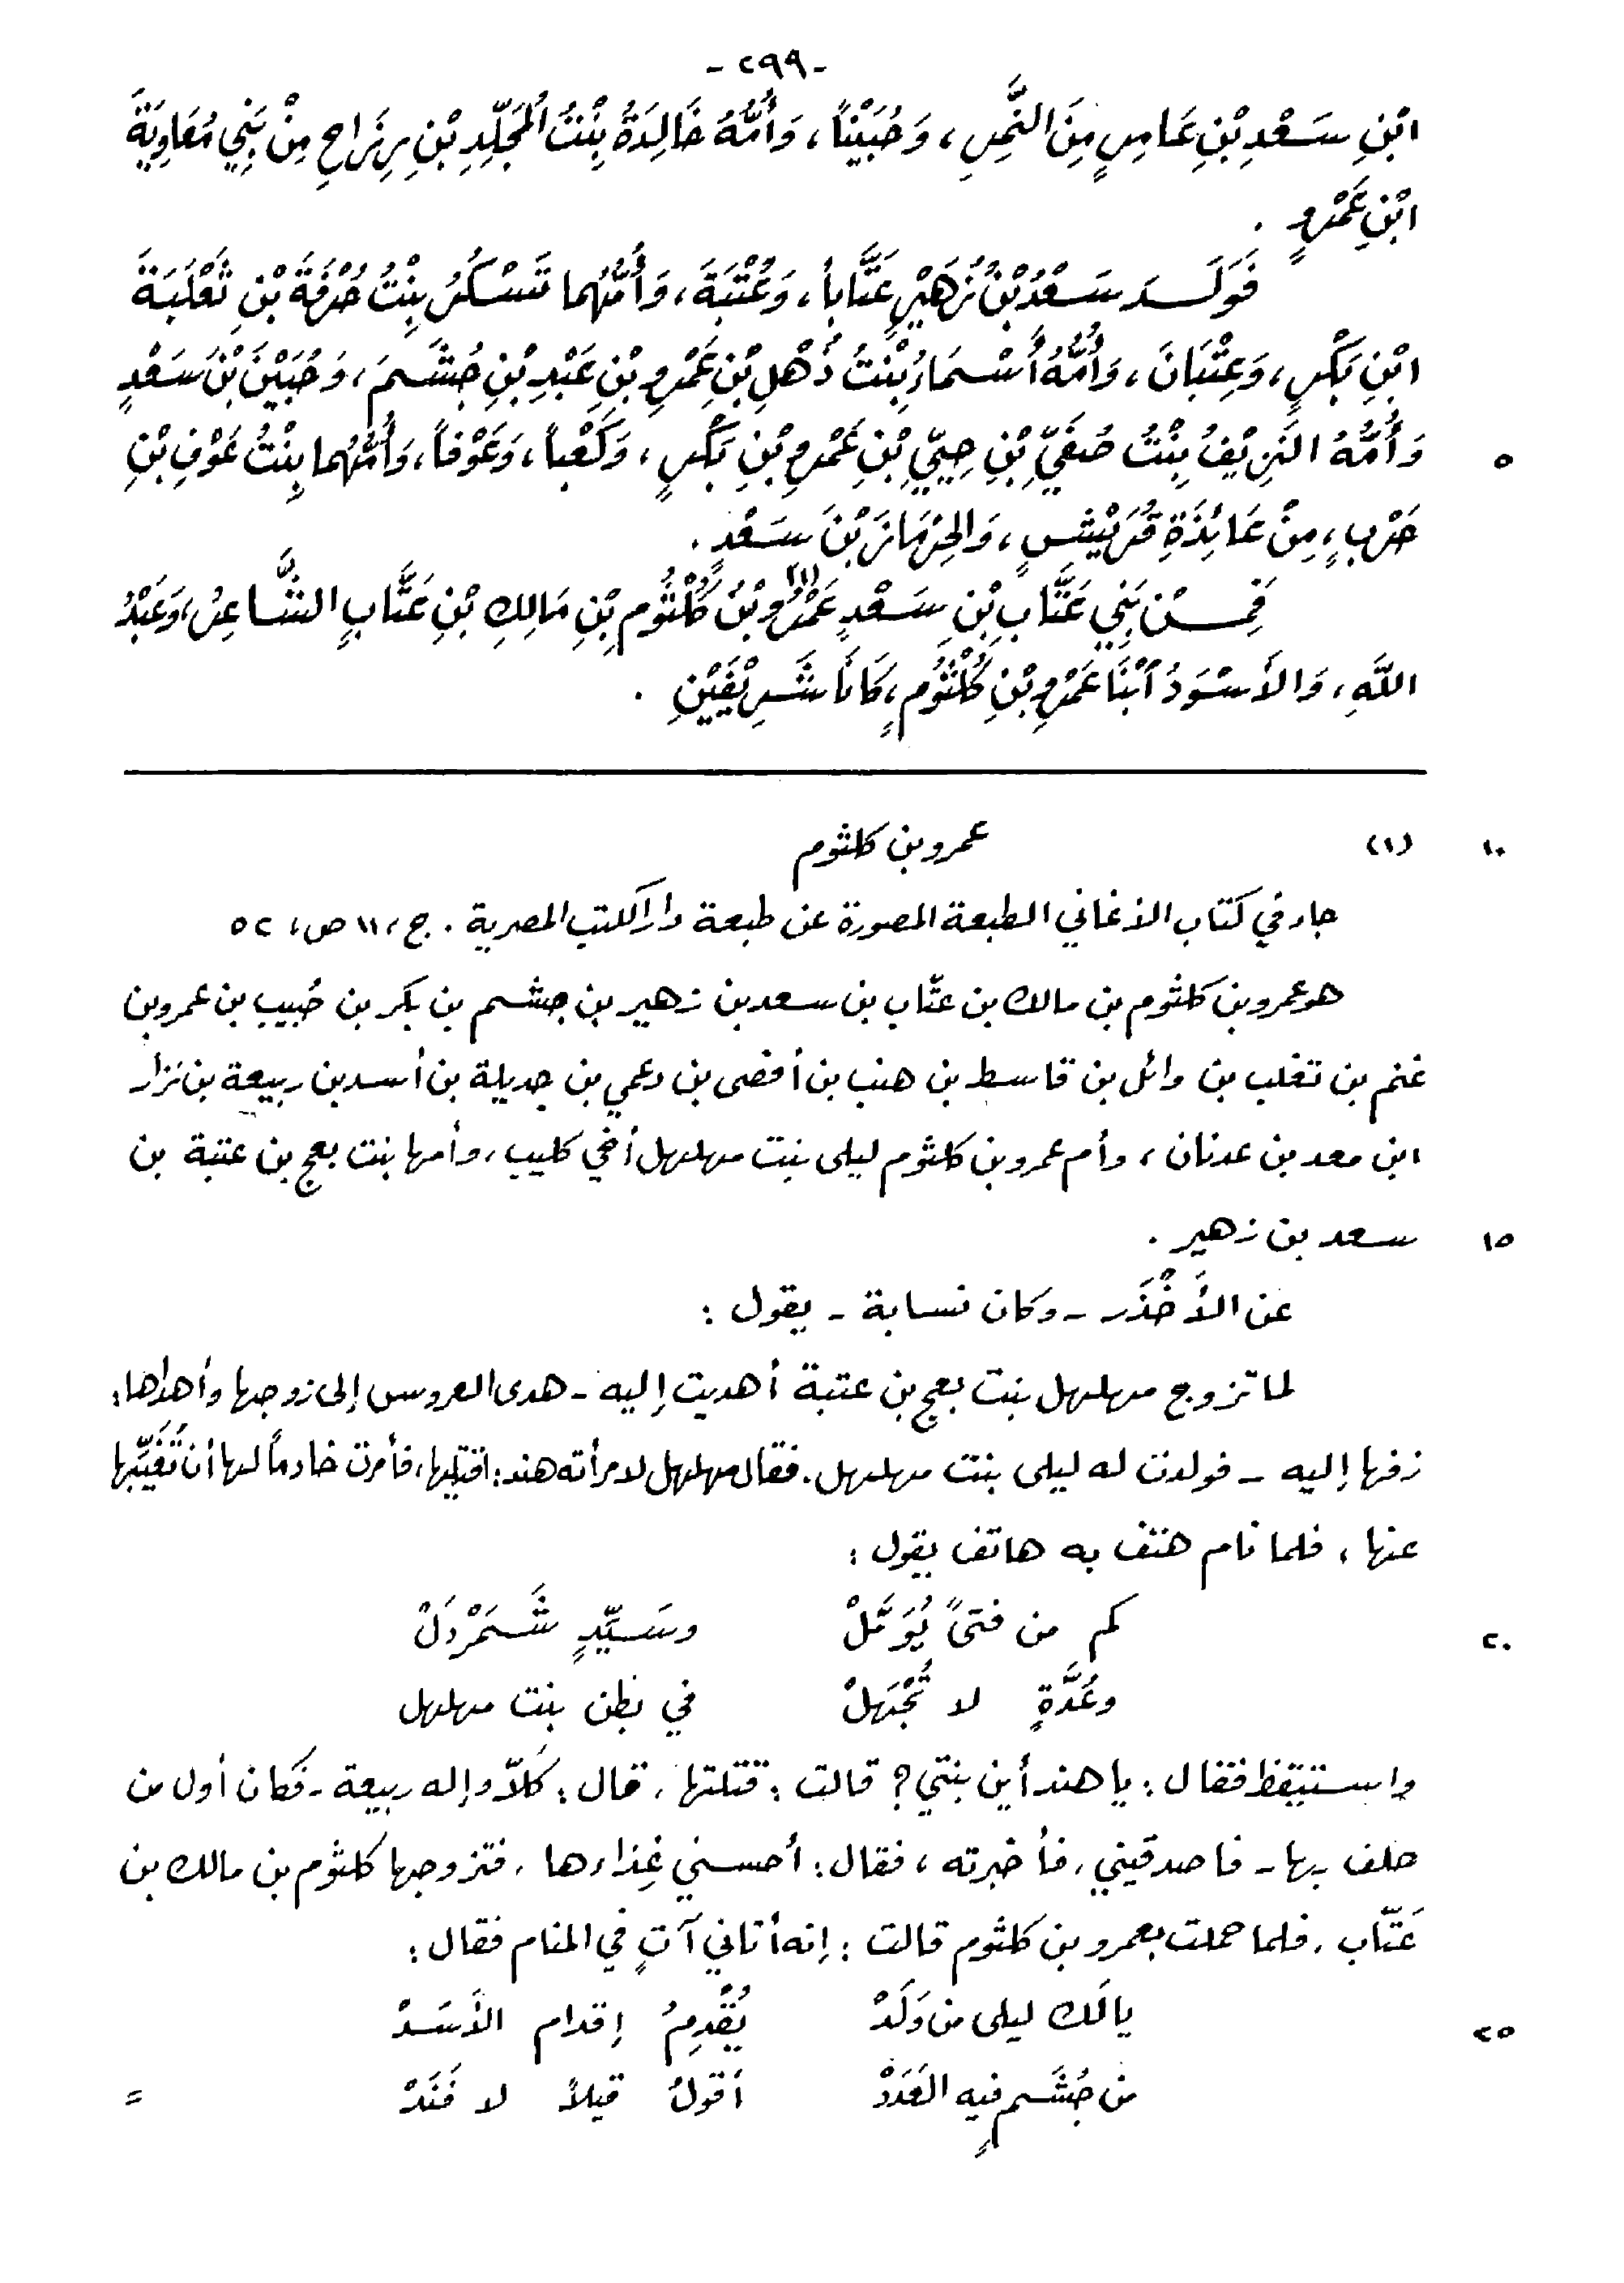 - ٢٩٩ -
ابْنِ سَعْدِ بْنِ عَامِرٍ مِنَ النَّمِرِ، وَحُبَيْناً، وَأُمُّهُ خَالِدَةُ بِنْتُ الْمُجَلِّدِ بْنِ رِزَاحٍ مِنْ بَنِي مُعَاوِيَةَ
ابْنِ عَمْرٍو .
فَوَلَدَ سَعْدُ بْنُ زُهَيْرٍ عَتَّاباً، وَعُتْبَةَ، وَأُمُّهُما تَسْكُرُ بِنْتُ حُرْفَةَ بْنِ ثَعْلَبَةَ
ابْنِ بَكْرٍ، وَعِتْبَانَ، وَأُمُّهُ أَسْمَاءُ بِنْتُ ذُهْلِ بْنِ عَمْرِو بْنِ عَبْدِ بْنِ جُشَمَ، وَحُبَيْنَ بْنَ سَعْدٍ
٥ وَأُمُّهُ النَّزِيْفُ بِنْتُ صُفَيِّ بْنِ حِيَيِّ بْنِ عَمْرِو بْنِ بَكْرٍ، وَكَعْباً، وَعَوْفاً، وَأُمُّهُما بِنْتُ عَوْفِ بْنِ
حَرْبٍ، مِنْ عَائِذَةِ قُرَيْشٍ، وَالحِرْمَازَ بْنَ سَعْدٍ .
فَمِنْ بَنِي عَتَّابِ بْنِ سَعْدٍ عَمْرُو بْنُ كُلْثُومِ (١) بْنِ مَالِكِ بْنِ عَتَّابٍ الشَّاعِرُ، وَعَبْدُ
اللَّهِ، وَالأَسْوَدُ ابْنَا عَمْرِو بْنِ كُلْثُومٍ، كَانَا شَرِيْفَيْنِ .
١٠ (١) عمرو بن كلثوم
جاء في كتاب الأغاني الطبعة المصورة عن طبعة دار الكتب المصرية . ج، ١١ ص، ٥٢
هو عمرو بن كلثوم بن مالك بن عتّاب بن سعد بن زهير بن جشم بن بكر بن حُبيب بن عمرو بن
غنم بن تغلب بن وائل بن قاسط بن هنب بن أفصى بن دعمي بن جديلة بن أسد بن ربيعة بن نزار
ابن معد بن عدنان، وأم عمرو بن كلثوم ليلى بنت مهلهل أخي كليب، وأمها بنت بعج بن عتبة بن
١٥ سعد بن زهير .
عن الأَخْذَر - وكان نسابة - يقول :
لما تزوج مهلهل بنت بعج بن عتبة أهديت إليه - هدى العروس إلى زوجها وأهداها:
زفها إليه - فولدت له ليلى بنت مهلهل. فقال مهلهل لامرأته هند: اقتليها، فأمرت خادماً لها أن تُغَيِّبها
عنها، فلما نام هتف به هاتف يقول :
٢٠ كم من فتىً يُؤَمَّلْ وسَيِّدٍ شَمَرْدَلْ
وعُدَّةٍ لا تُجْهَلْ في بطن بنت مهلهل
واستيقظ فقال : يا هند أين بنتي؟ قالت : قتلتها، قال : كلاّ وإله ربيعة - فكان أول من
حلف بها - فاصدقيني، فأخبرته، فقال : أحسني غِذاءها، فتزوجها كلثوم بن مالك بن
عَتّاب، فلما حملت بعمرو بن كلثوم قالت : إنه أتاني آتٍ في المنام فقال :
٢٥ يا لَك ليلى من وَلَدْ يُقْدِمُ إقدام الأَسَدْ
من جُشَمٍ فيه العَدَدْ أقولُ قيلاً لا فَنَدْ =